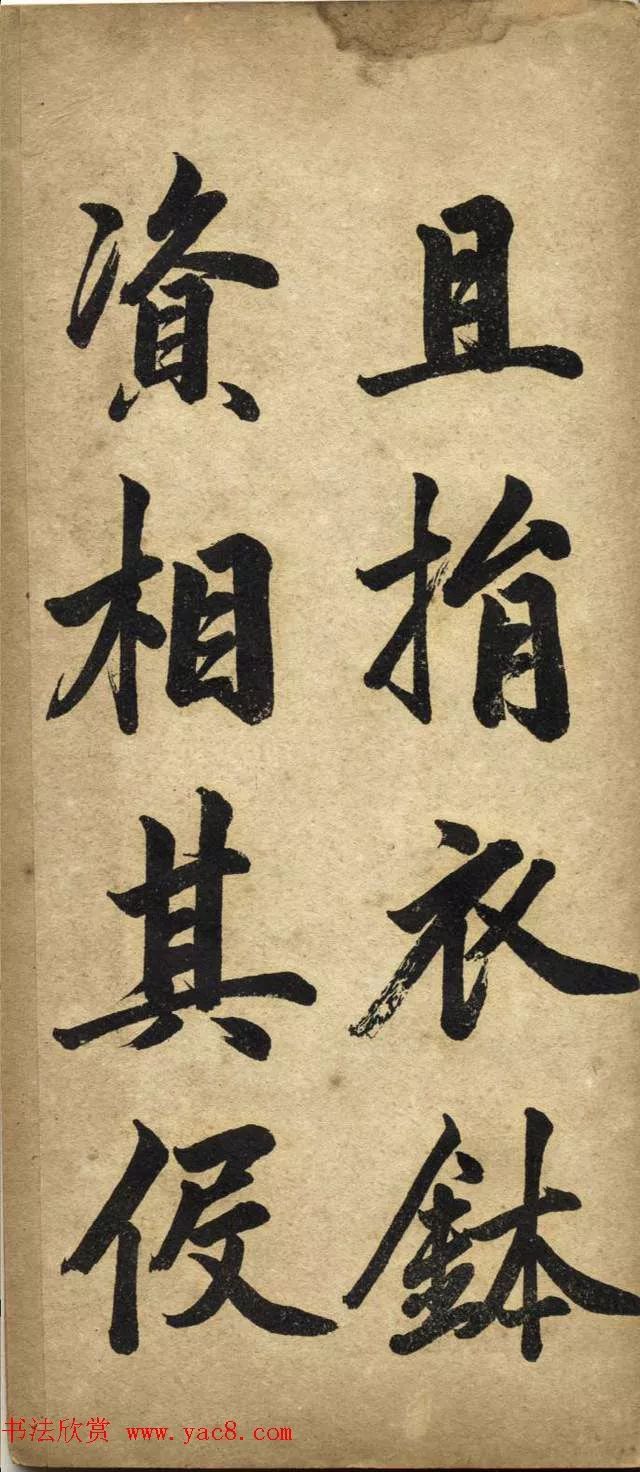 且捐衣鉢
資相其役
书法欣赏 www.yac8.com